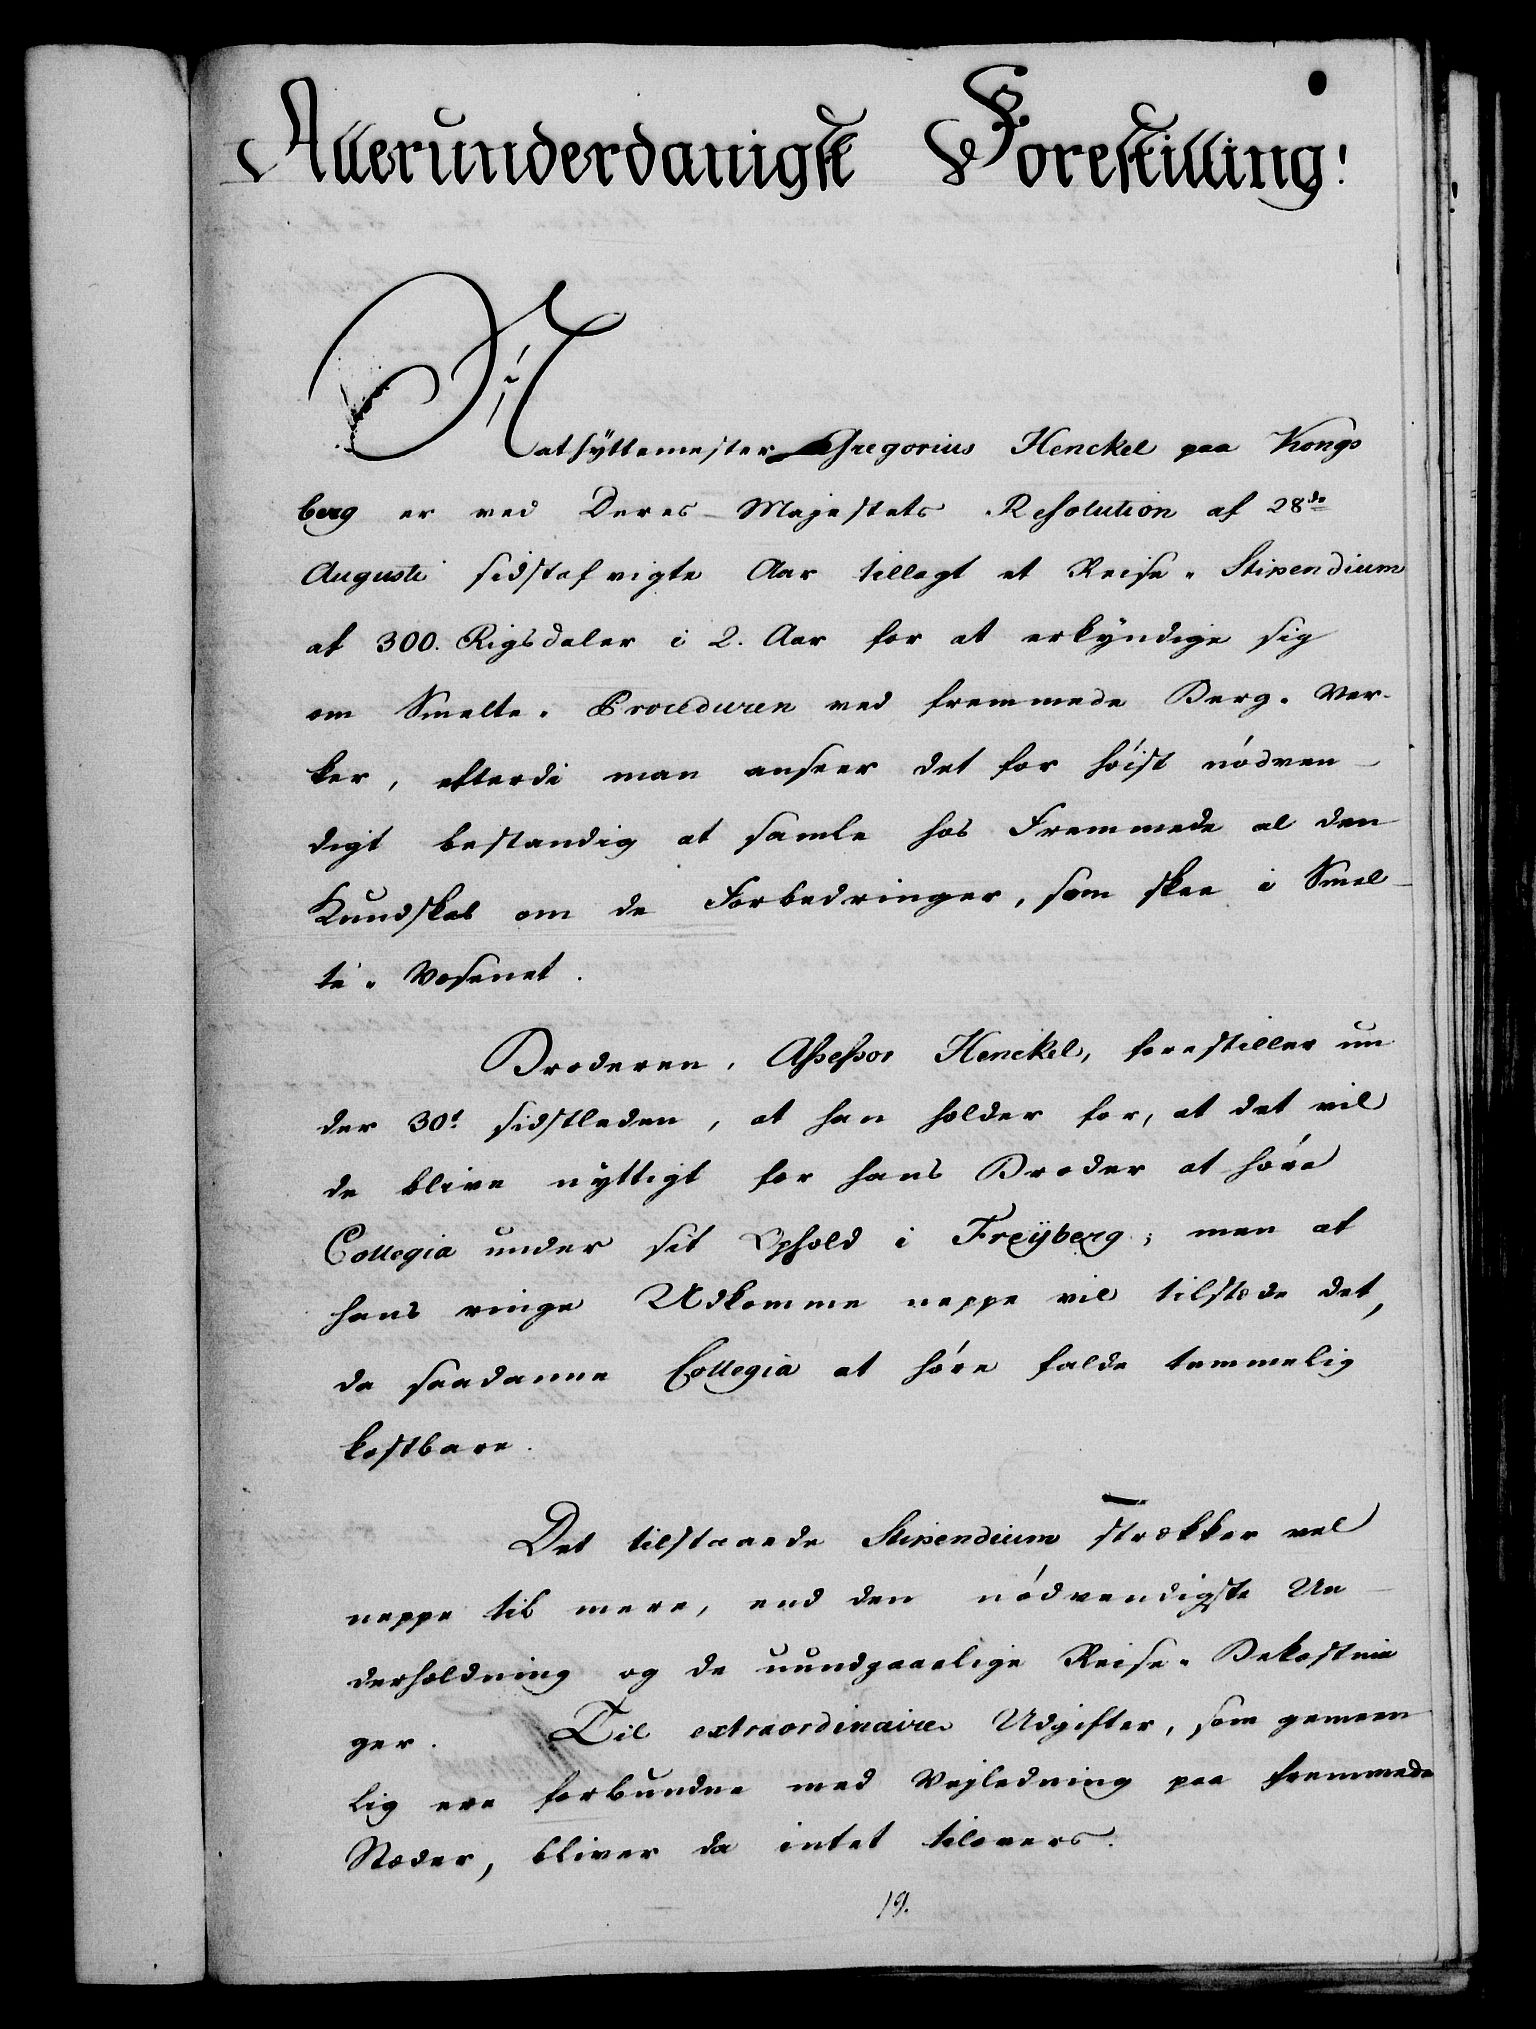 Allerunderdanigst Forestilling!
Nathyttemester Gregorius Henckel paa Kongs
berg er ved Deres Majestets Resolution af 28de
Augusti sidstafvigte Aar tillagt et Reise-Stipendium
af 300. Rigsdaler i 2. Aar for at erkyndige sig
om Smelte-Proceduren ved fremmede Berg-Ver-
ker, efterdi man anseer det for höist nödven-
digt bestandig at samle hos Fremmede al den
Kundskab om de Forbedringer, som skee i Smel-
te-Vesenet.
Broderen, Assessor Henckel, forestiller un
der 30t sidstleden, at han holder for, at det vil
de blive nyttigt for hans Broder at höre
Collegia under sit Ophold i Freyberg; men at
hans ringe Udkomme neppe vil tilstede det,
da saadanne Collegia at höre falde temmelig
kostbare.
Det tilstaaede Stipendium strekker vel
neppe til mere, end den nödvendigste Un-
derholdning og de uundgaaelige Reise-Bekostnin
ger. Til extraordinaire Udgifter, som gemeen
lig ere forbundne med Vejledning paa fremmede
Steder, bliver da intet tilovers.
19.